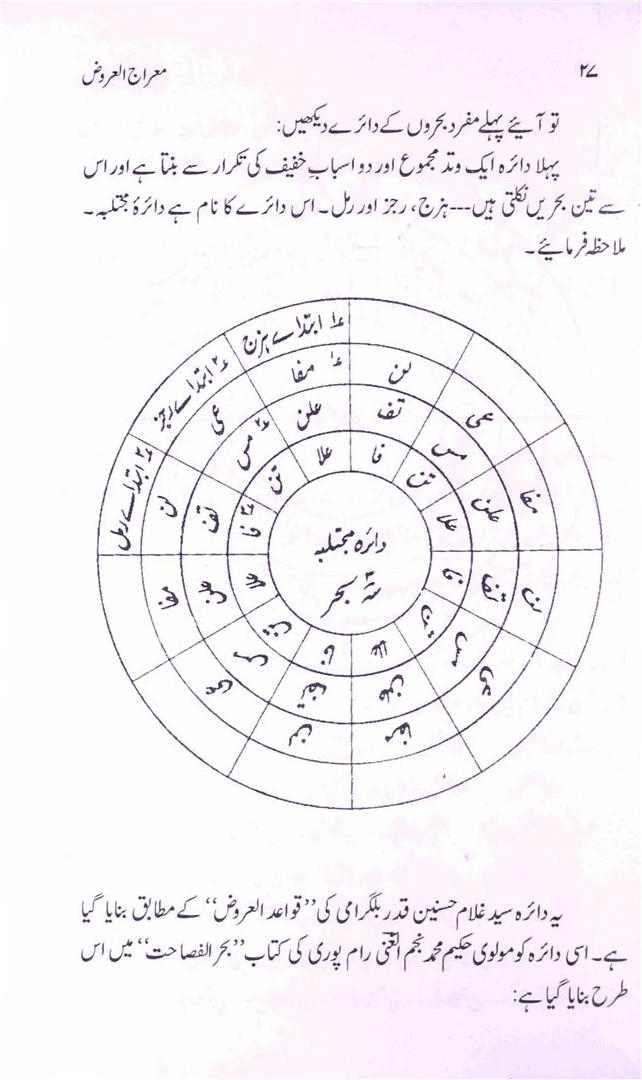 ۲۷
معراج العروض
تو آیئے پہلے مفرد بحروں کے دائرے دیکھیں:
پہلا دائرہ ایک وتد مجموع اور دو اسبابِ خفیف کی تکرار سے بنتا ہے اور اس
سے تین بحریں نکلتی ہیں---ہزج، رجز اور رمل۔ اس دائرے کا نام ہے دائرۂ مجتلبہ۔
ملاحظہ فرمائیے۔
۱ ابتداے ہزج
۲ ابتداے رجز
۳ ابتداے رمل
۱ مفا
لن
عی
مفا
لن
عی
مفا
لن
عی
مفا
لن
عی
علن
تف
مس
علن
تف
مس
علن
تف
مس
علن
تف
۲ مس
علا
فا
تن
علا
فا
تن
علا
فا
تن
علا
۳ فا
تن
دائرہ مجتلبہ
سہ بحر
یہ دائرہ سید غلام حسنین قدر بلگرامی کی ”قواعد العروض“ کے مطابق بنایا گیا
ہے۔ اسی دائرہ کو مولوی حکیم محمد نجم الغنی رام پوری کی کتاب ”بحر الفصاحت“ میں اس
طرح بنایا گیا ہے: